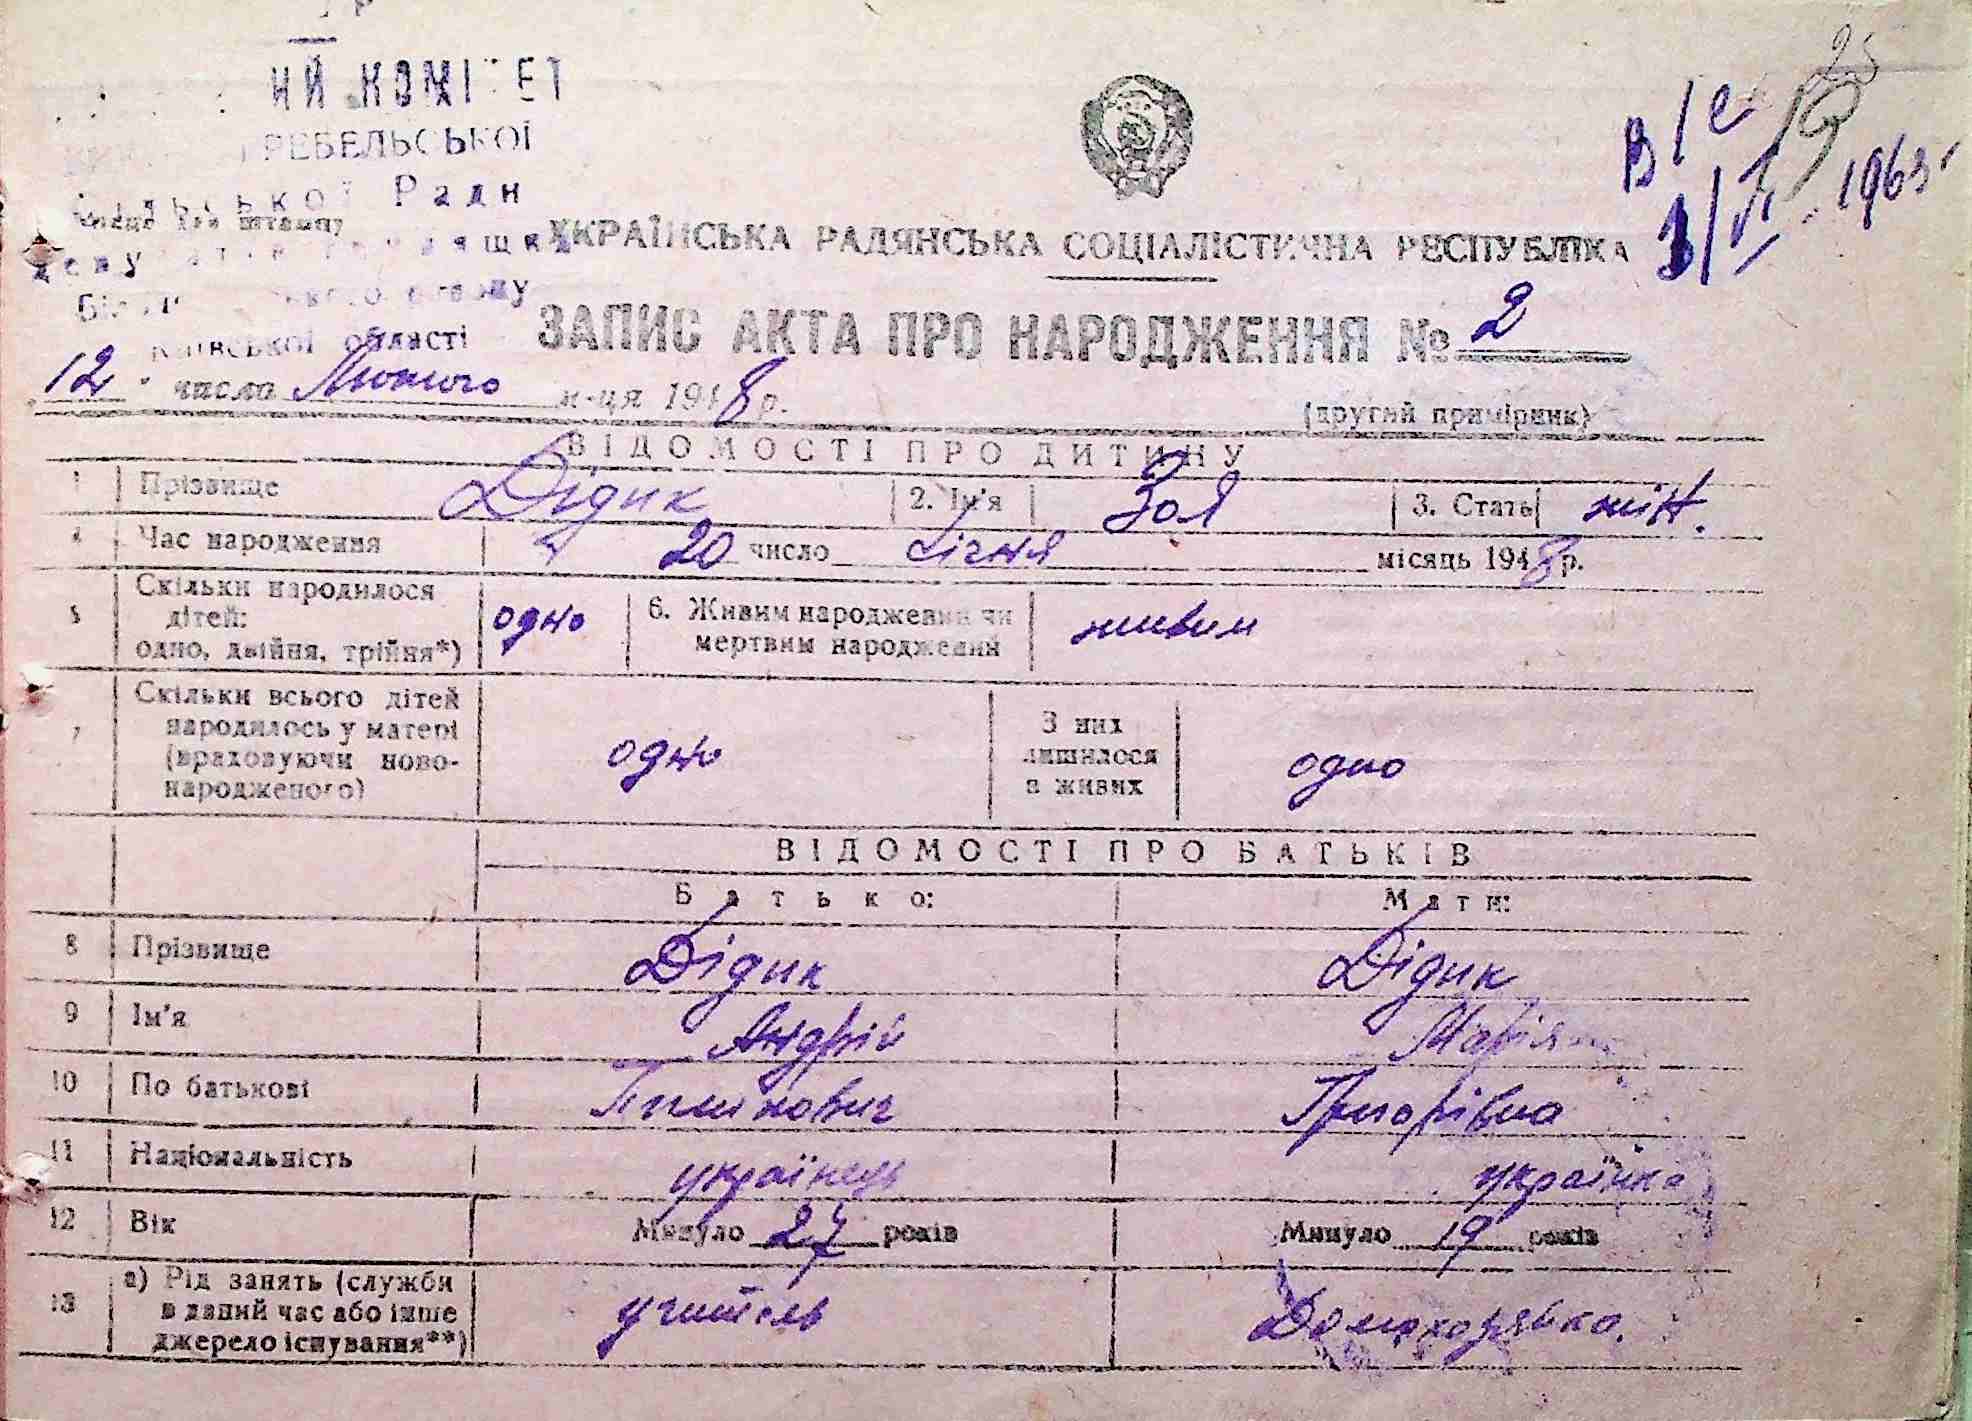 25
НИЙ КОМІТЕТ
ГРЕБЕЛЬСЬКОЇ
сільської Ради
Місце для штампу
В/с
1/VI 1963.
УКРАЇНСЬКА РАДЯНСЬКА СОЦІАЛІСТИЧНА РЕСПУБЛІКА
Київської області
ЗАПИС АКТА ПРО НАРОДЖЕННЯ № 2
12 числа Лютого м-ця 1948 р.
(другий примірник)
ВІДОМОСТІ ПРО ДИТИНУ
1 Прізвище Дідик 2. Ім'я Зоя 3. Стать жін.
4 Час народження 20 число січня місяць 1948 р.
5 Скільки народилося дітей: одно, двійня, трійня*) одно 6. Живим народжений чи мертвим народжений живим
7 Скільки всього дітей народилось у матері (враховуючи новонародженого) одно З них лишилося в живих одно
ВІДОМОСТІ ПРО БАТЬКІВ
Батько: Мати:
8 Прізвище Дідик Дідик
9 Ім'я Андрій Марія
10 По батькові Григорівна
11 Національність українець українка
12 Вік Минуло 27 років Минуло 19 років
13 а) Рід занять (служби в даний час або інше джерело існування**) учитель Домохозяйка.